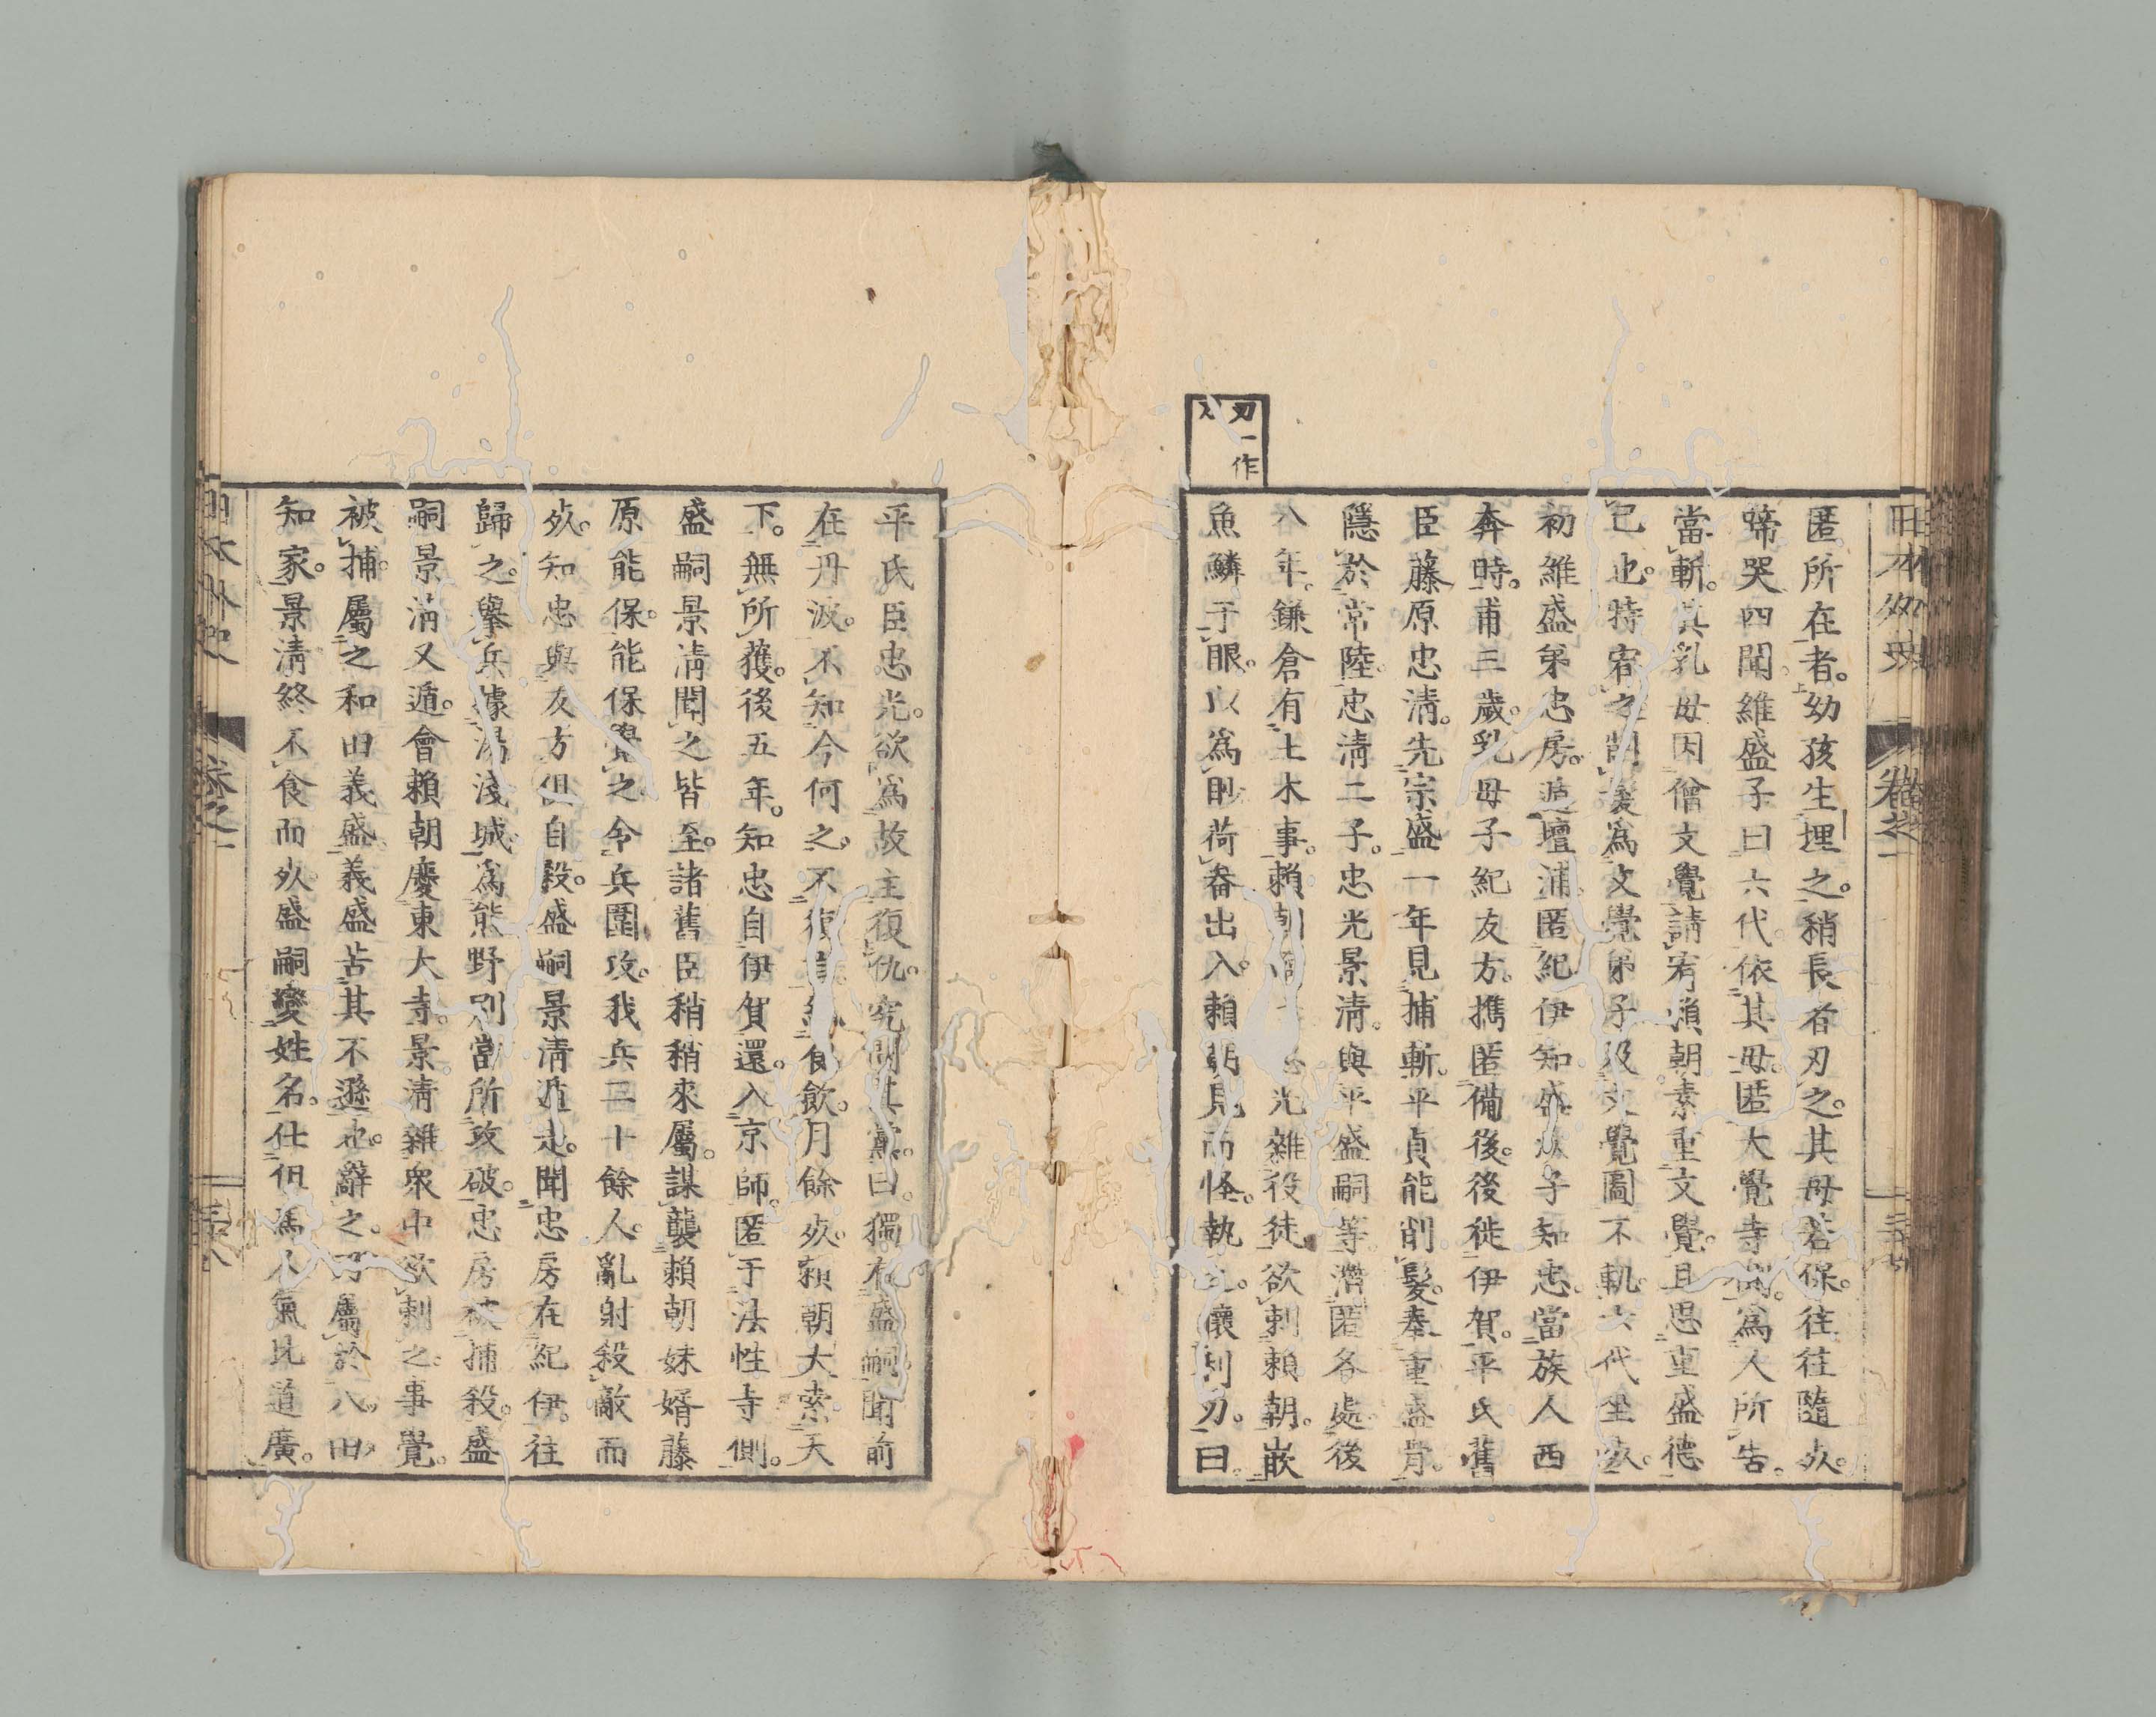 日本外史 卷之一
匿所在者。幼孩生埋之。稍長者刃之。其母若保。往往隨㱙。
啼哭四聞。維盛子曰六代。依其母。匿大覺寺側。爲人所告。
當斬。其乳母因僧文覺請宥。賴朝素重文覺。且思重盛德
已也。特宥之。削髮爲文覺弟子。及文覺圖不軌。六代坐㱙。
初維盛弟忠房。遁壇浦。匿紀伊。知盛㱙子知忠。當族人西
奔時。甫三歲。乳母子紀友方。携匿備後。後徙伊賀。平氏舊
臣藤原忠淸。先宗盛一年見捕斬。平貞能削髮。奉重盛骨。
隱於常陸。忠淸二子。忠光景淸。與平盛嗣等。濳匿各處。後
八年。鎌倉有土木事。賴朝忠光雜役徒。欲刺賴朝。嵌
魚鱗于眼。以爲眇。荷畚出入。賴朝見而怪。執懷利刃。曰。
刃一作
平氏臣忠光。欲爲故主復仇。究問其黨。曰。獨有盛嗣。聞前
在丹波。不知今何之。不復食飮。月餘㱙。賴朝大索天
下。無所獲。後五年。知忠自伊賀還。入京師。匿于法性寺側。
盛嗣景淸聞之皆至。諸舊臣稍稍來屬。謀襲賴朝妹婿藤
原能保。能保覺之。令兵圍攻。我兵二十餘人。亂射殺敵而
㱙。知忠與友方俱自殺。盛嗣景淸遁走。聞忠房在紀伊。往
歸之。擧兵據湯淺城。爲熊野別當所攻破。忠房被捕殺。盛
嗣景淸又遁。會賴朝慶東大寺。景淸雜衆中。欲刺之。事覺。
被捕。屬之和田義盛。義盛苦其不遜也。辭之。乃屬於八田
知家。景淸終不食而㱙。盛嗣變姓名。仕但馬人氣比道廣。
日本外史 卷之一 三十八